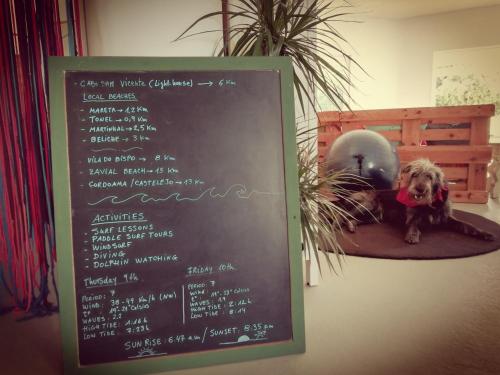 - CABO SAM VICENTE (Light.house) → 6 Km
LOCAL BEACHES
- MARETA → 1,2 Km
- TONEL → 0,9 Km
- MARTINHAL → 2,5 Km
- BELICHE → 3 Km
VILA DO BISPO → 8 Km
- ZAVIAL BEACH → 15 Km
- CORDOAMA / CASTELEJO → 13 Km
ACTIVITIES
- SURF LESSONS
- PADDLE SURF TOURS
- WINDSURF
- DIVING
- DOLPHIN WATCHING
Thursday 9th
PERIOD: 9
WIND: 38-49 Km/h (NW)
Tº 19º-24º Celsio
WAVES: 2.2
HIGH TIDE:
LOW TIDE: 7:23h
FRIDAY 10th
PERIOD: 7
WIND:
Tº Celsio
WAVES: 1.9
HIGH TIDE: 2:12h
LOW TIDE: 8:14
SUNRISE: 6:47 a.m / SUNSET: 8:35 pm